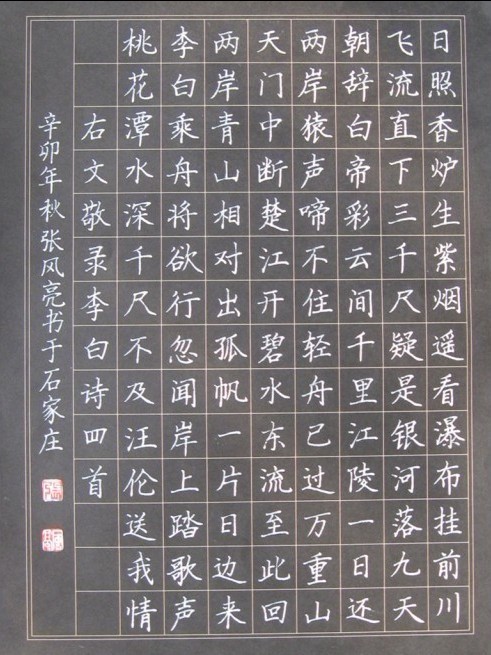 日照香炉生紫烟遥看瀑布挂前川
飞流直下三千尺疑是银河落九天
朝辞白帝彩云间千里江陵一日还
两岸猿声啼不住轻舟已过万重山
天门中断楚江开碧水东流至此回
两岸青山相对出孤帆一片日边来
李白乘舟将欲行忽闻岸上踏歌声
桃花潭水深千尺不及汪伦送我情
右文敬录李白诗四首
辛卯年秋张风亮书于石家庄